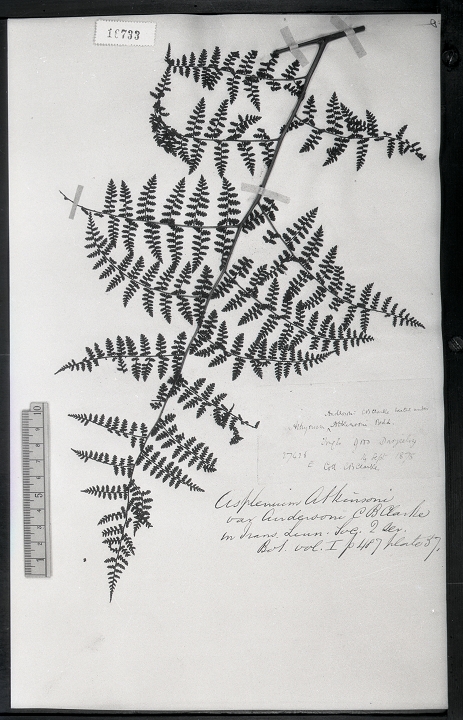 16733
Andersoni CBClarke
Athyrium Atkinsoni Bedd.
Darjeeling
27616 Sept 1875
Coll CBClarke
Asplenium Atkinsoni
var Andersoni C B Clarke
in Trans. Linn. Soc. 2 Ser.
Bot. vol. I p 487 plate 57.
10
5